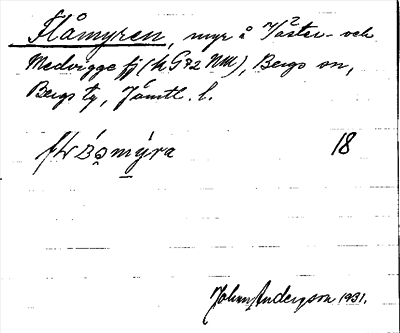 Flåmyren, myr å Väster- och
Medvigge fj (h G72 NM), Bergs sn,
Bergs tg, Jämtl. l.
18
John Anderson 1931.